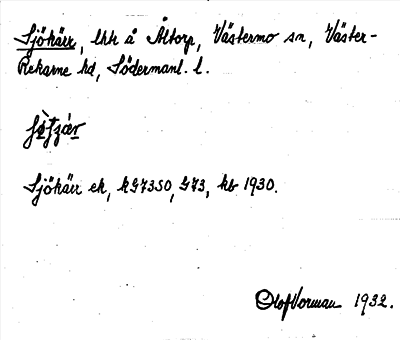 Sjökärr, lht å Åltorp, Västermo sn, Väster-
Rekarne hd, Södermanl. l.
Sjökärr ek, kG7350, G73, kb 1930.
Olof Vorman 1932.